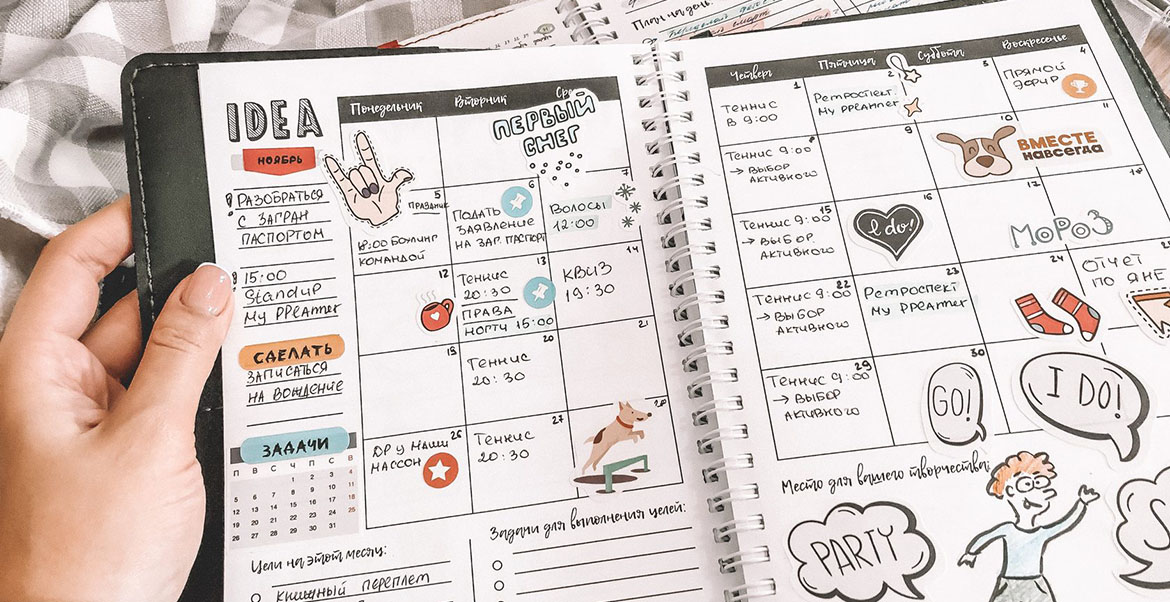 План на день:
IDEA
НОЯБРЬ
! РАЗОБРАТЬСЯ
С ЗАГРАН
ПАСПОРТОМ
15:00
StandUP
My PPEAMTER
СДЕЛАТЬ
ЗАПИСАТЬСЯ
НА ВОЖДЕНИЕ
ЗАДАЧИ
П В С Ч П С В
1 2 3 4
5 6 7 8 9 10 11
12 13 14 15 16 17 18
19 20 21 22 23 24 25
26 27 28 29 30 31
Цели на этот месяц:
КНИЖНЫЙ ПЕРЕПЛЕТ
Понедельник Вторник
ПЕРВЫЙ
СНЕГ
5
ПРАЗДНИК
18:00 БОУЛИНГ
КОМАНДОЙ
6
ПОДАТЬ
ЗАЯВЛЕНИЕ
НА ЗАГ. ПАСПОРТ
7
ВОЛОСЫ
12:00
12
13
ТЕННИС
20:30
ПРАВА
НОГТИ 15:00
14
КВИЗ
19:30
19
20
ТЕННИС
20:30
21
26
ДР У НАШИ
МАССОН
27
ТЕННИС
20:30
28
Задачи для выполнения целей:
Четверг Пятница Суббота Воскресенье
1
ТЕННИС
В 9:00
2
РЕТРОСПЕКТ.
My PPEAMTER
3
4
ПРЯМОЙ
ЭФИР
8
ТЕННИС 9:00
→ ВЫБОР
АКТИВНОГО
9
10
ВМЕСТЕ
НАВСЕГДА
11
15
ТЕННИС 9:00
→ ВЫБОР
АКТИВНОГО
16
I do!
17
МОРОЗ
18
22
ТЕННИС 9:00
→ ВЫБОР
АКТИВНОГО
23
РЕТРОСПЕКТ
My PPEAMTER
24
ОТЧЕТ
ПО ЯНЕ
29
ТЕННИС 9:00
→ ВЫБОР
АКТИВНОГО
30
GO!
I DO!
Место для вашего творчества:
PARTY